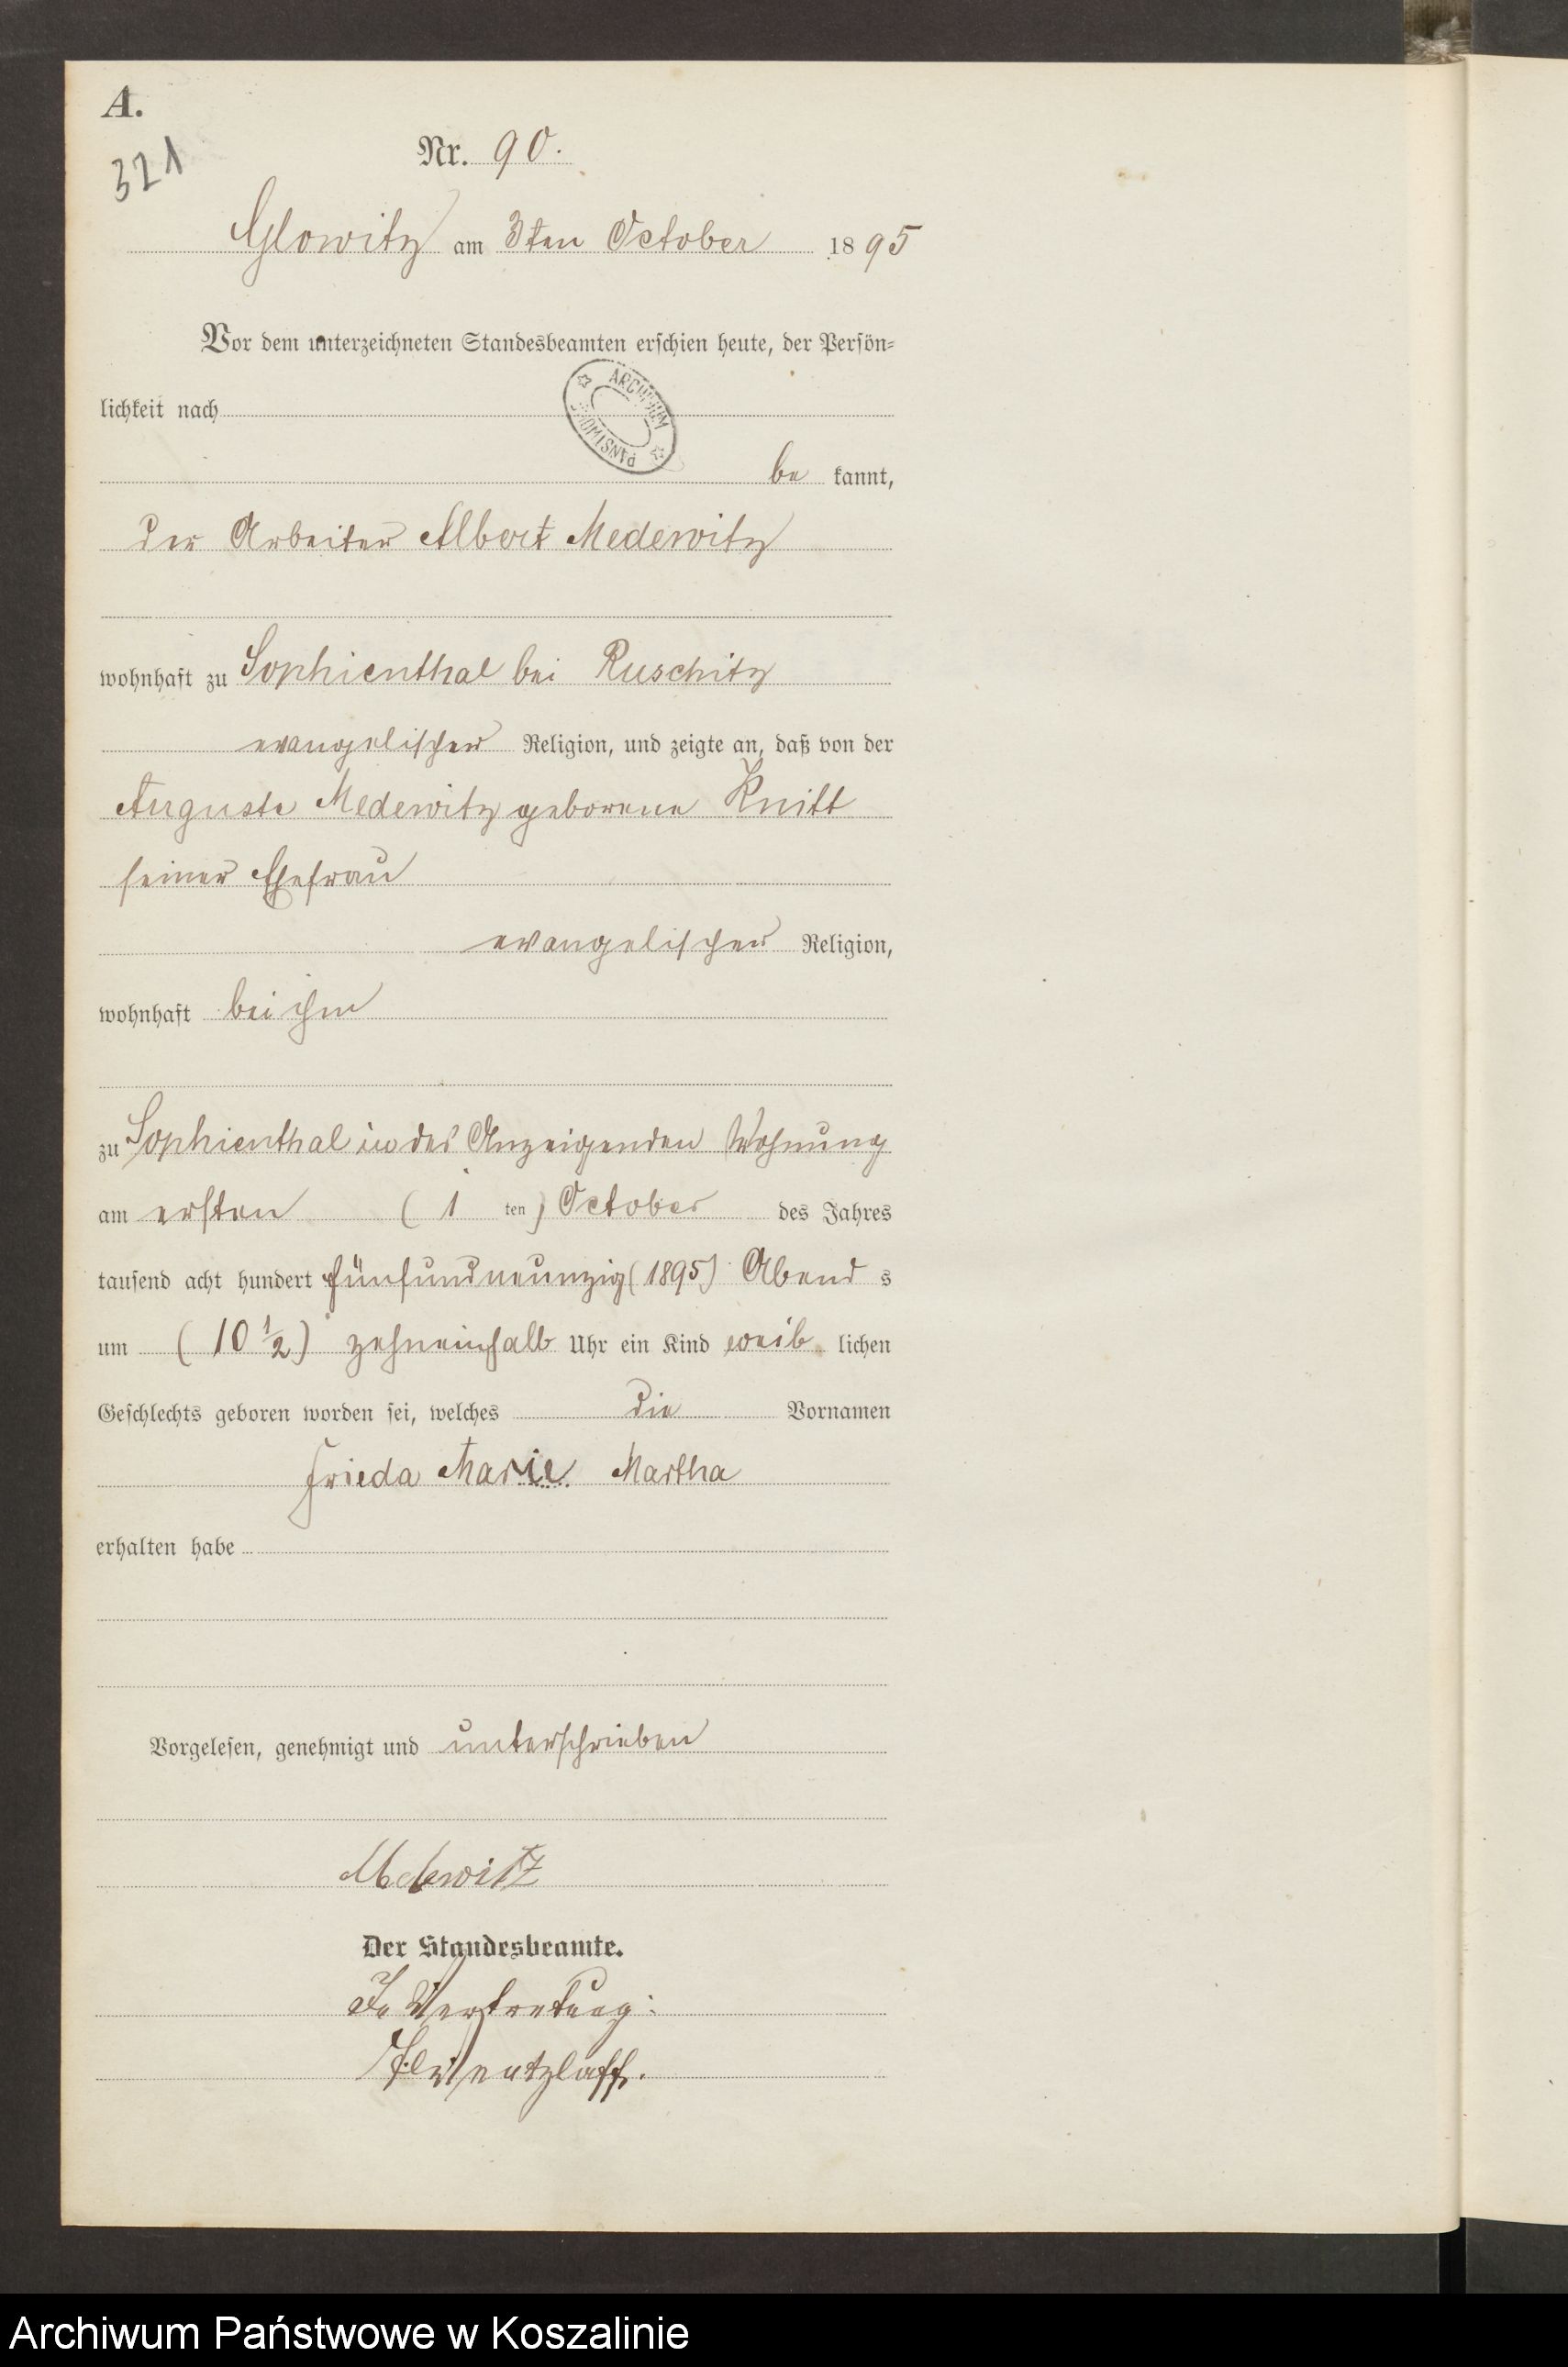 A.
321
Nr. 90.
Glowitz am 3ten October 1895
Vor dem unterzeichneten Standesbeamten erschien heute, der Persön-
lichkeit nach
ARCHIWUM
PAŃSTWOWE
be kannt,
der Arbeiter Albert Medewitz
wohnhaft zu Sophienthal bei Ruschitz
evangelischer Religion, und zeigte an, daß von der
Auguste Medewitz geborene Knitt
seiner Ehefrau
evangelischer Religion,
wohnhaft bei ihm
zu Sophienthal in des Anzeigenden Wohnung
am ersten (1 ten) October des Jahres
tausend acht hundert fünfundneunzig (1895) Abend s
um (10 1/2) zehneinhalb Uhr ein Kind weib lichen
Geschlechts geboren worden sei, welches die Vornamen
Frieda Marie Martha
erhalten habe
Vorgelesen, genehmigt und unterschrieben
Medewitz
Der Standesbeamte.
In Vertretung:
Archiwum Państwowe w Koszalinie